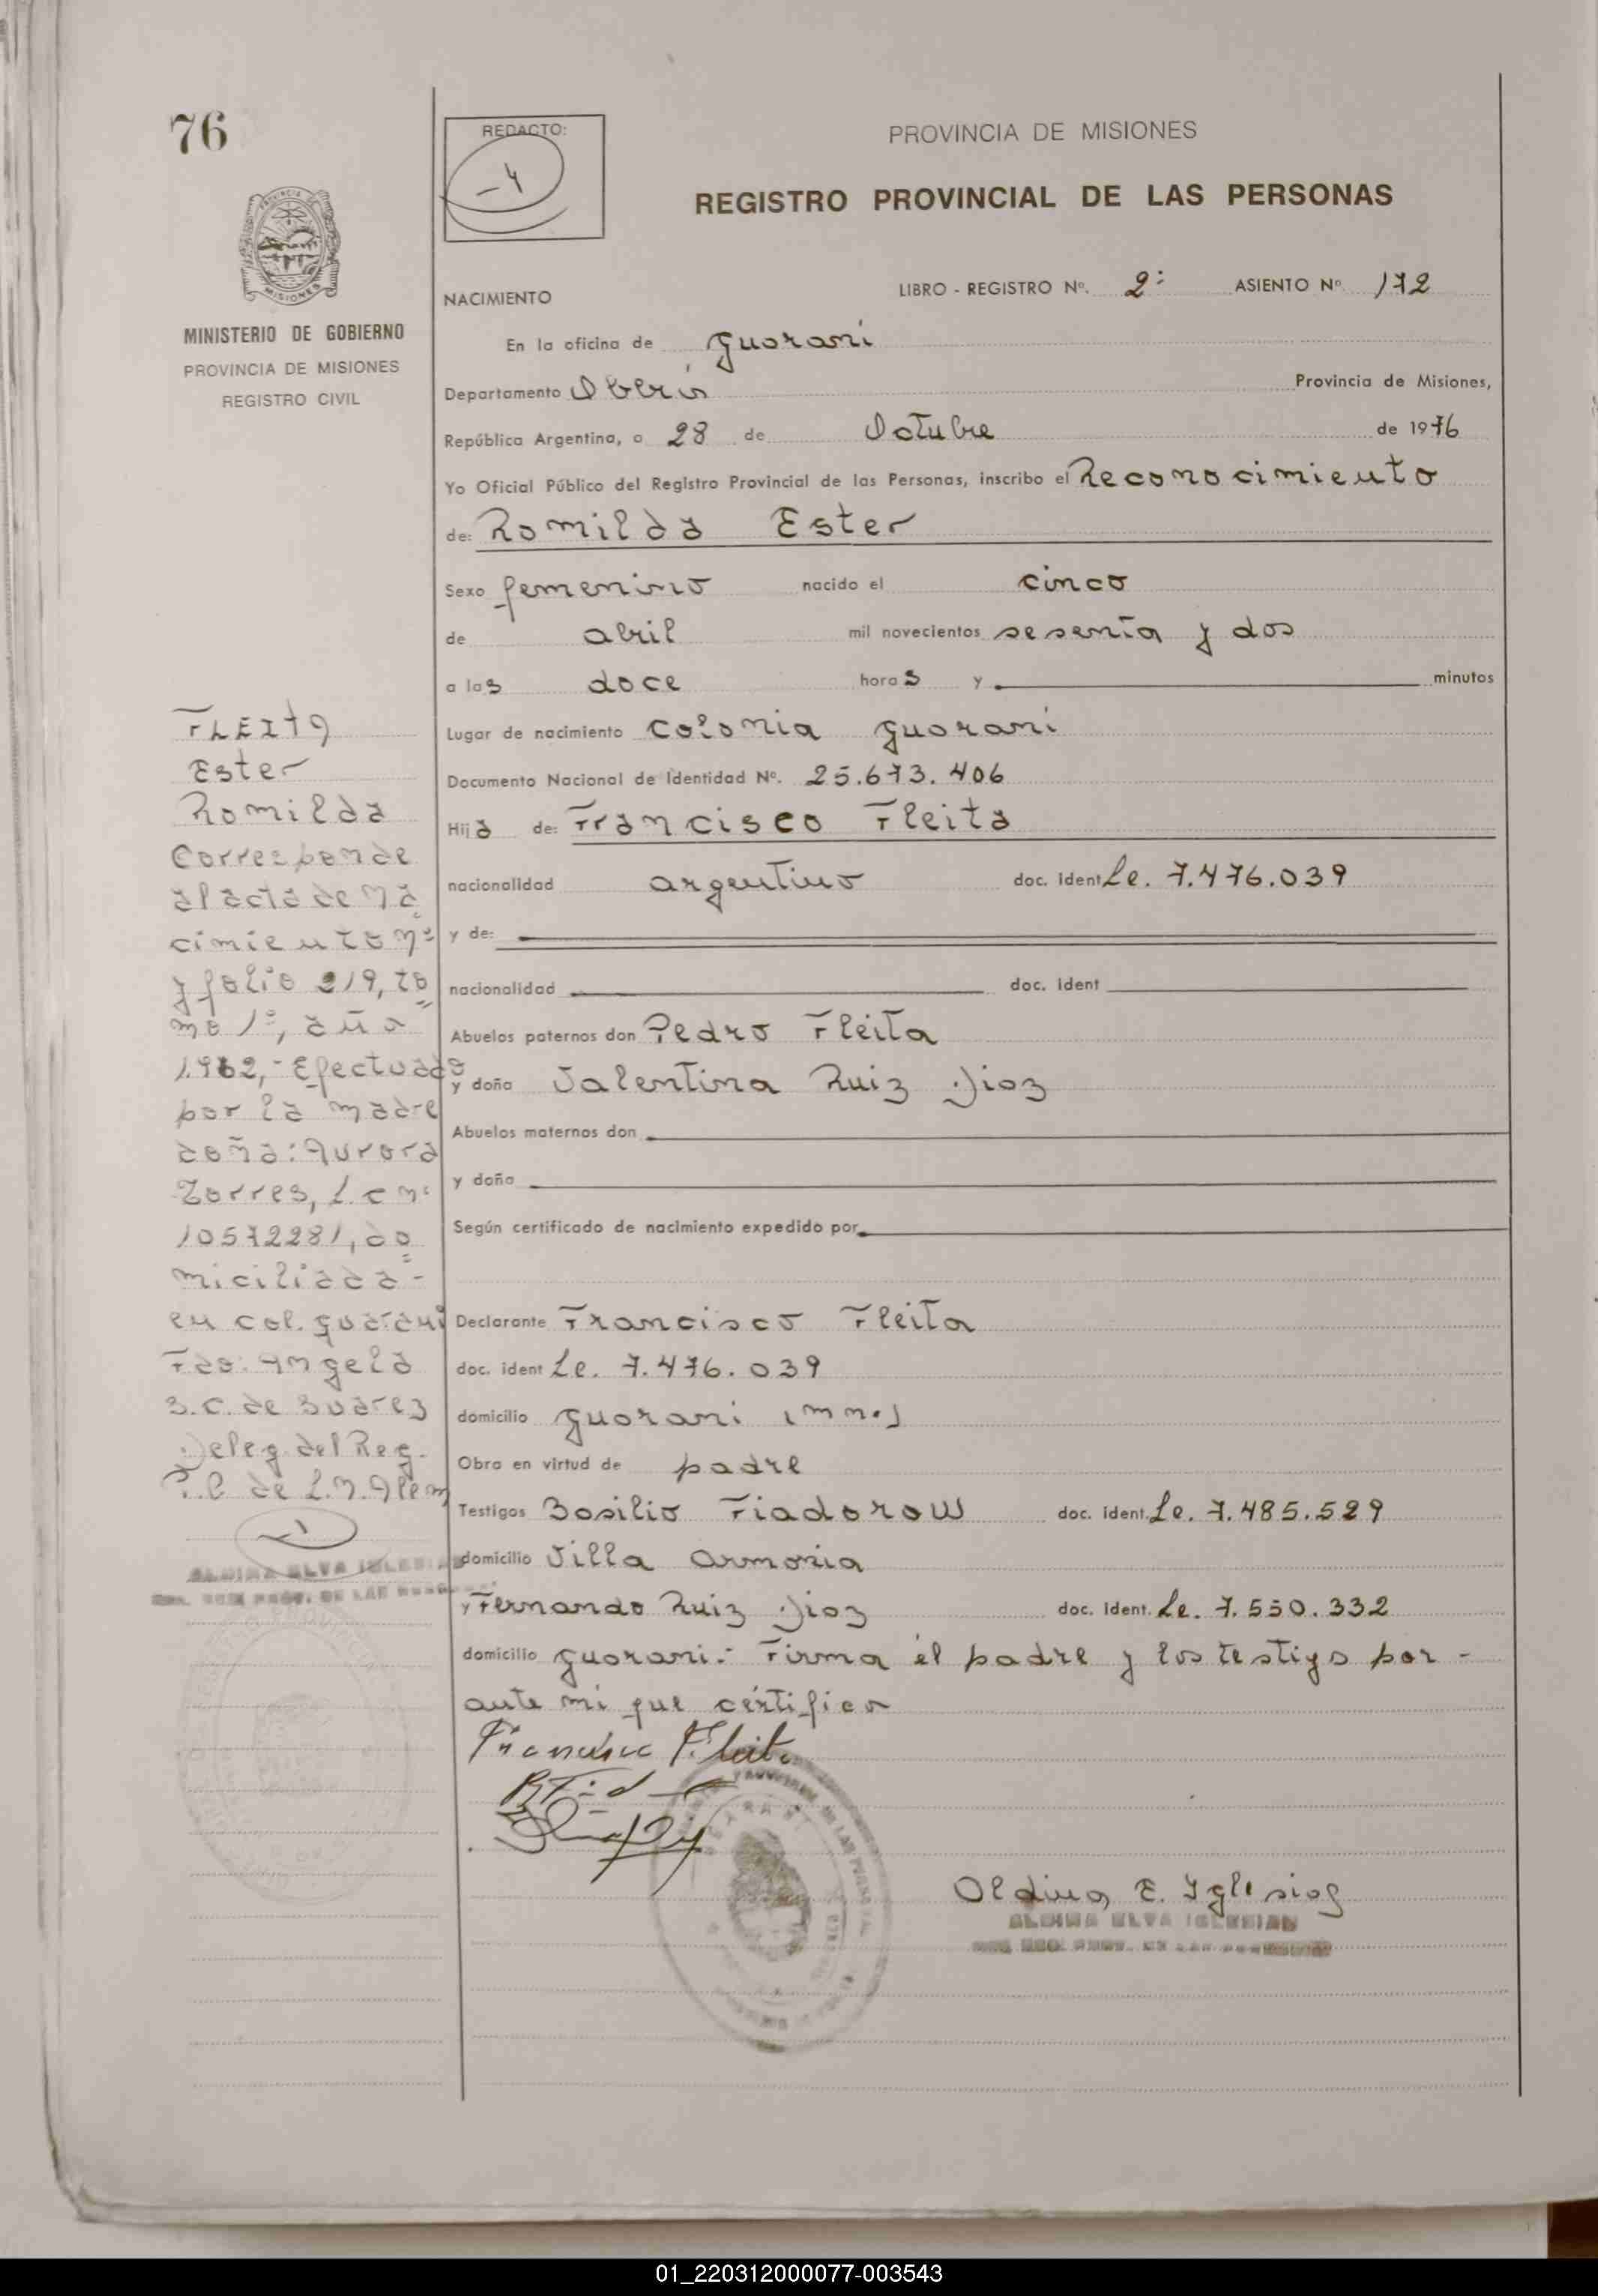 76
REDACTO:
PROVINCIA DE MISIONES
REGISTRO PROVINCIAL DE LAS PERSONAS
MISIONES
MINISTERIO DE GOBIERNO
PROVINCIA DE MISIONES
REGISTRO CIVIL
NACIMIENTO LIBRO - REGISTRO Nº. 2º ASIENTO Nº 172
En la oficina de Guarani
Departamento Oberá Provincia de Misiones,
República Argentina, a 28 de Octubre de 1976
Yo Oficial Público del Registro Provincial de las Personas, inscribo el Reconocimiento
de: Romilda Ester
Sexo femenino nacido el cinco
de abril mil novecientos sesenta y dos
a las doce horas y minutos
Lugar de nacimiento Colonia Guarani
Documento Nacional de Identidad Nº. 25.673.406
Hija de: Francisco Fleita
nacionalidad argentino doc. ident Le. 7.476.039
y de:
nacionalidad doc. ident
Abuelos paternos don Pedro Fleita
y doña Valentina Ruiz Diaz
Abuelos maternos don
y doña
Según certificado de nacimiento expedido por
Declarante Francisco Fleita
doc. ident Le. 7.476.039
domicilio Guarani (mnes)
Obra en virtud de padre
Testigos Basilio Fiadorow doc. ident. Le. 7.485.529
domicilio Villa Armonia
y Fernando Ruiz Diaz doc. ident. Le. 7.550.332
domicilio Guarani.- Firma el padre y los testigs por -
ante mi que certifico
Francisco Fleita
Aldina E. Iglesias
ALDINA ELVA IGLESIAS
FLEITA
Ester
Romilda
Corresponde
al acta de na
cimiento nº
y folio 219, to
mo 1º, año
1.962,- Efectuado
por la madre
doña: Aurora
Torres, L.C nº
10572281, do
miciliada -
en col. guarani
Fdo: Angela
S.C. de Suarez
Deleg. del Reg.
P.P de L.N. Alem
ALDINA ELVA IGLESIAS
01_220312000077-003543